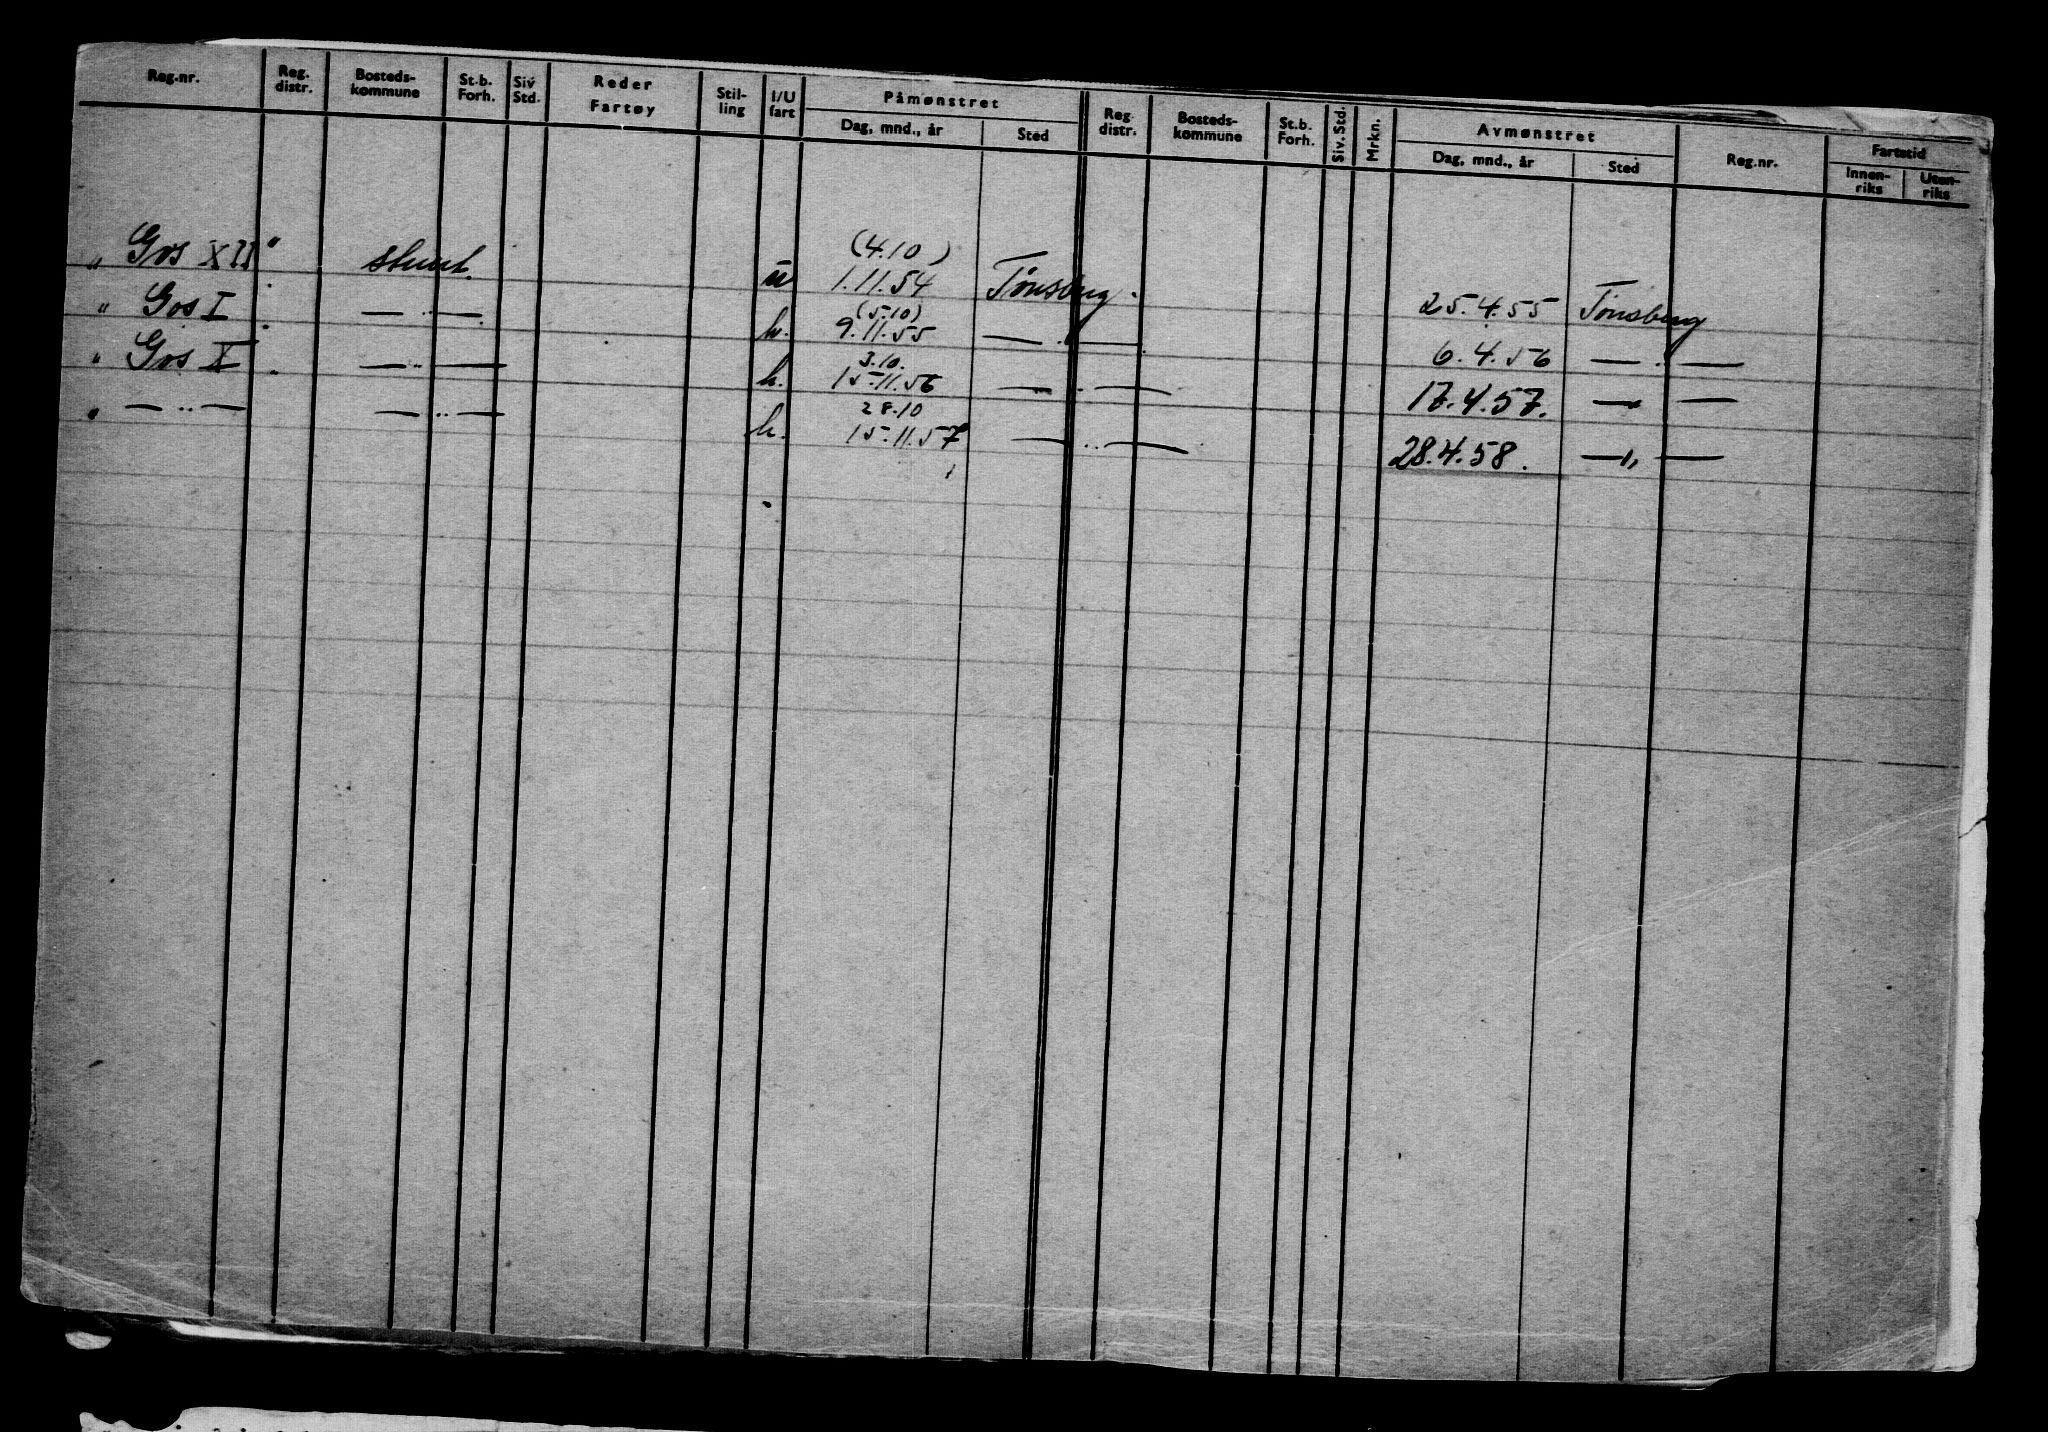 Reg.nr. Reg. distr. Bosteds-kommune St.b. Forh. Siv Std. Reder Fartøy Stil-ling I/U fart Påmønstret Dag, mnd., år Sted Reg. distr. Bosteds-kommune St.b. Forh. Siv. Std. Mrkn. Avmønstret Dag, mnd., år Sted Reg.nr. Fartstid Innen-riks Uten-riks
(4.10)
„ Gos XII" u 1.11.54 Tønsberg. 25.4.55 Tønsberg
(5.10)
" Gos I — " — h. 9.11.55 — " — 6.4.56 — " —
3.10.
" Gos X — " — h. 15.11.56 — " — 17.4.57. — " —
28.10
" — " — — " — h. 15.11.57 — " — 28.4.58. — " —